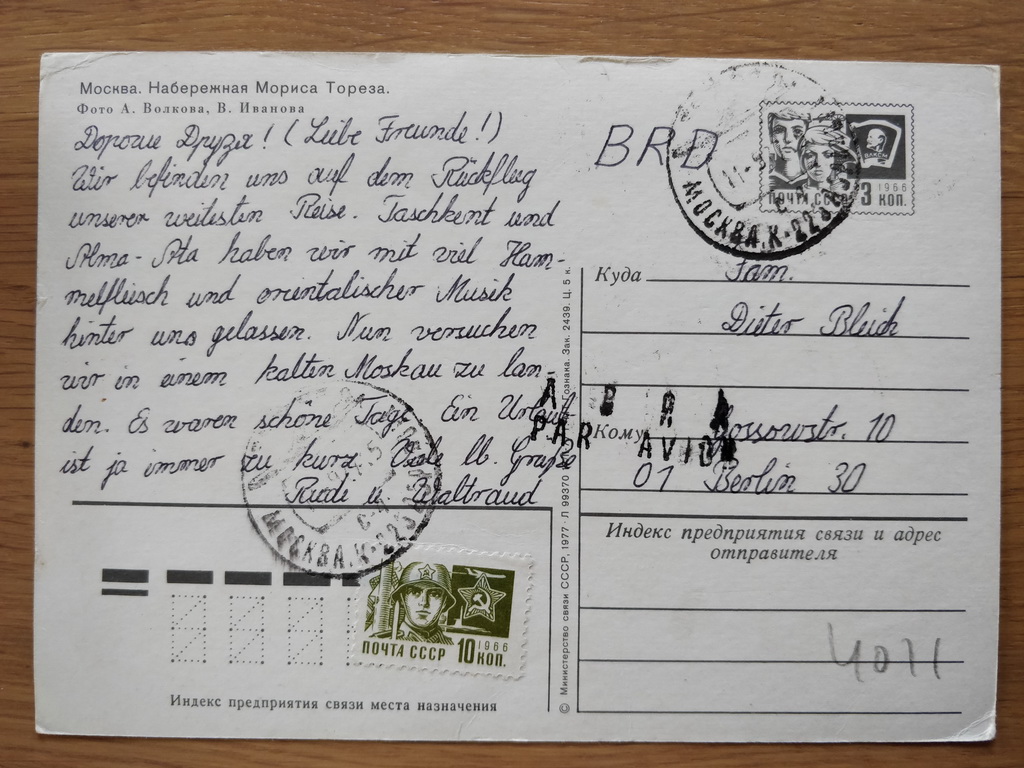 Москва. Набережная Мориса Тореза.
Фото А. Волкова, В. Иванова
Дорогие Друзя! (Liebe Freunde!)
Wir befinden uns auf dem Rückflug
unserer weitesten Reise. Taschkent und
Alma-Ata haben wir mit viel Ham-
melfleisch und orientalischer Musik
hinter uns gelassen. Nun versuchen
wir in einem kalten Moskau zu lan-
den. Es waren schöne Tage. Ein Urlaub
ist ja immer zu kurz. Viele lb. Grüße
Rudi u. Waltraud
BRD
ПОЧТА СССР 3 КОП.
1966
ВЛКСМ
МОСКВА.К-223
Куда
Fam.
Dieter Bleich
АВИА
PAR AVION
Кому
Gossowstr. 10
01 Berlin 30
Индекс предприятия связи и адрес
отправителя
4011
МОСКВА.К-223
ПОЧТА СССР 10 КОП.
1966
Индекс предприятия связи места назначения
© Министерство связи СССР, 1977. Л 99370 Зак. 2439. Ц. 5 к.